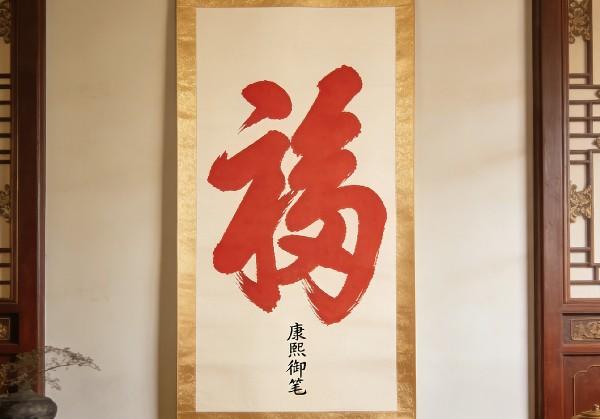 福
康熙御笔